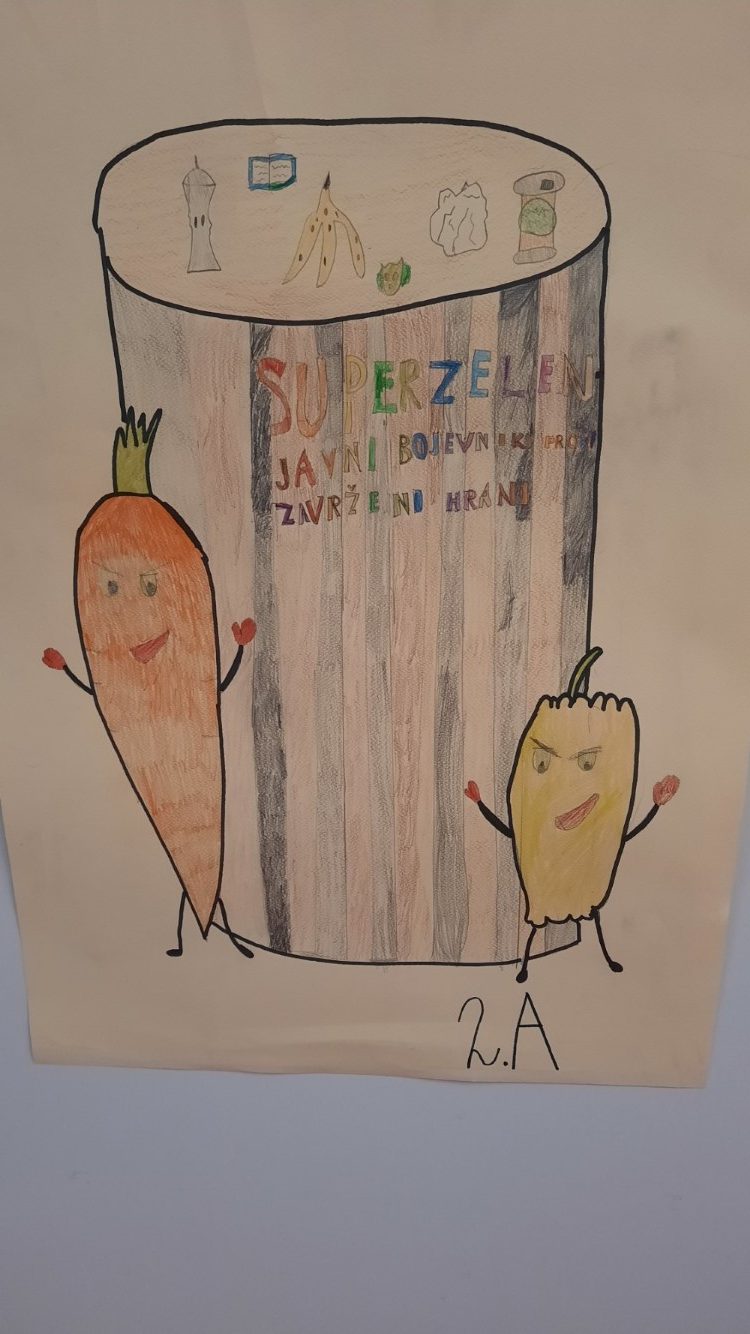 SUPERZELEN
JAVNI BOJEVNIKI PROTI
ZAVRŽENI HRANI
2.A